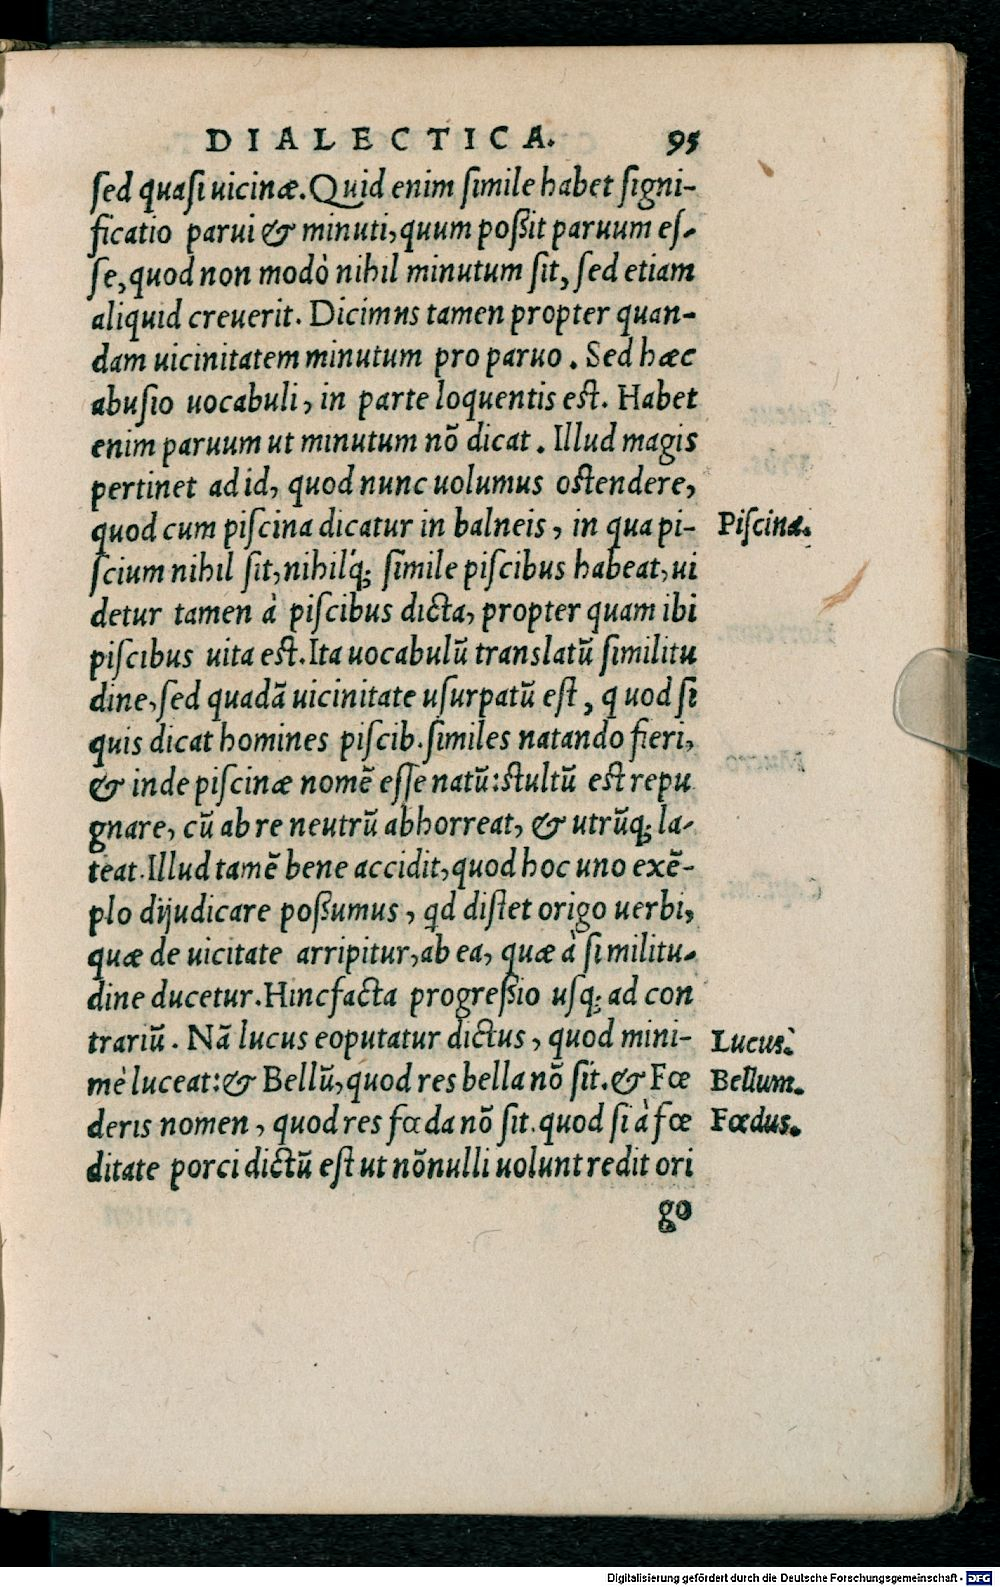 DIALECTICA. 95
sed quasi uicinæ. Quid enim simile habet signi-
ficatio parui & minuti, quum poßit paruum es-
se, quod non modò nihil minutum sit, sed etiam
aliquid creuerit. Dicimns tamen propter quan-
dam uicinitatem minutum pro paruo. Sed hæc
abusio uocabuli, in parte loquentis est. Habet
enim paruum ut minutum nõ dicat. Illud magis
pertinet ad id, quod nunc uolumus ostendere,
quod cum piscina dicatur in balneis, in qua pi- Piscina.
scium nihil sit, nihilq́; simile piscibus habeat, ui
detur tamen à piscibus dicta, propter quam ibi
piscibus uita est. Ita uocabulũ translatũ similitu
dine, sed quadã uicinitate usurpatũ est, quod si
quis dicat homines piscib. similes natando fieri,
& inde piscinæ nomẽ esse natũ: stultũ est repu
gnare, cũ ab re neutrũ abhorreat, & utrũq; la-
teat. Illud tamẽ bene accidit, quod hoc uno exẽ-
plo dijudicare poßumus, qd distet origo uerbi,
quæ de uicitate arripitur, ab ea, quæ à similitu-
dine ducetur. Hinc facta progreßio usq; ad con
trariũ. Nã lucus eo putatur dictus, quod mini- Lucus.
mè luceat: & Bellũ, quod res bella nõ sit. & Fœ Bellum.
deris nomen, quod res fœda nõ sit. quod si à fœ Fœdus.
ditate porci dictũ est ut nõnulli uolunt redit ori
go
Digitalisierung gefördert durch die Deutsche Forschungsgemeinschaft - DFG